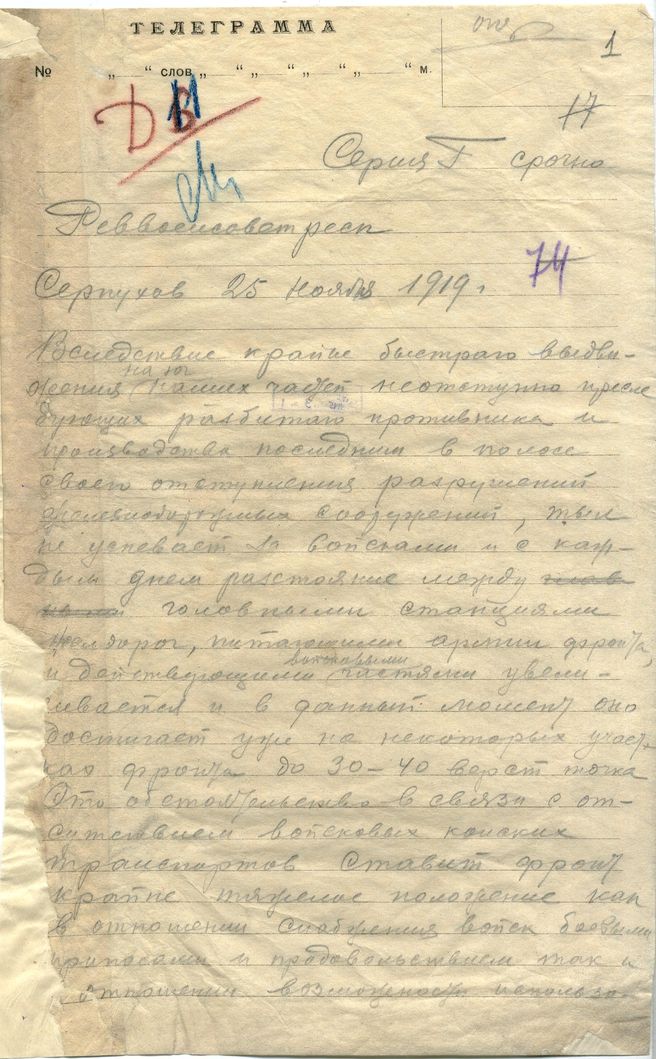 ТЕЛЕГРАММА
1
№ „ “ слов „ “ „ “ „ “„ “ м.
17
Серия Г срочно
Реввоенсоветресп
74
Серпухов 25 ноября 1919 г
Вследствие крайне быстраго выдви-
на юг
жения наших частей неотступно пресле
дующих разбитаго противника и
производства последним в полосе
своего отступления разрушений
железнодорожных сооружений, тыл
не успевает за войсками и с каж-
дым днем разстояние между
головными станциями
желдорог, питающими армии фронта,
войсковыми
и действующими частями увели-
чивается и в данный момент оно
достигает уже на некоторых участ-
ках фронта до 30-40 верст точка
Это обстоятельство в связи с от-
сутствием войсковых конских
транспортов ставит фронт
крайне тяжелое положение как
в отношении снабжения войск боевыми
припасами и продовольствием так и
в отношении возможности использо-